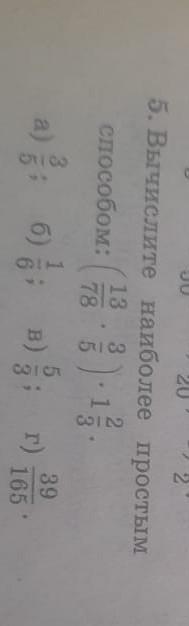 5. Вычислите наиболее простым
способом: (13/78 · 3/5) · 1 2/3.
а) 3/5; б) 1/6; в) 5/3; г) 39/165.